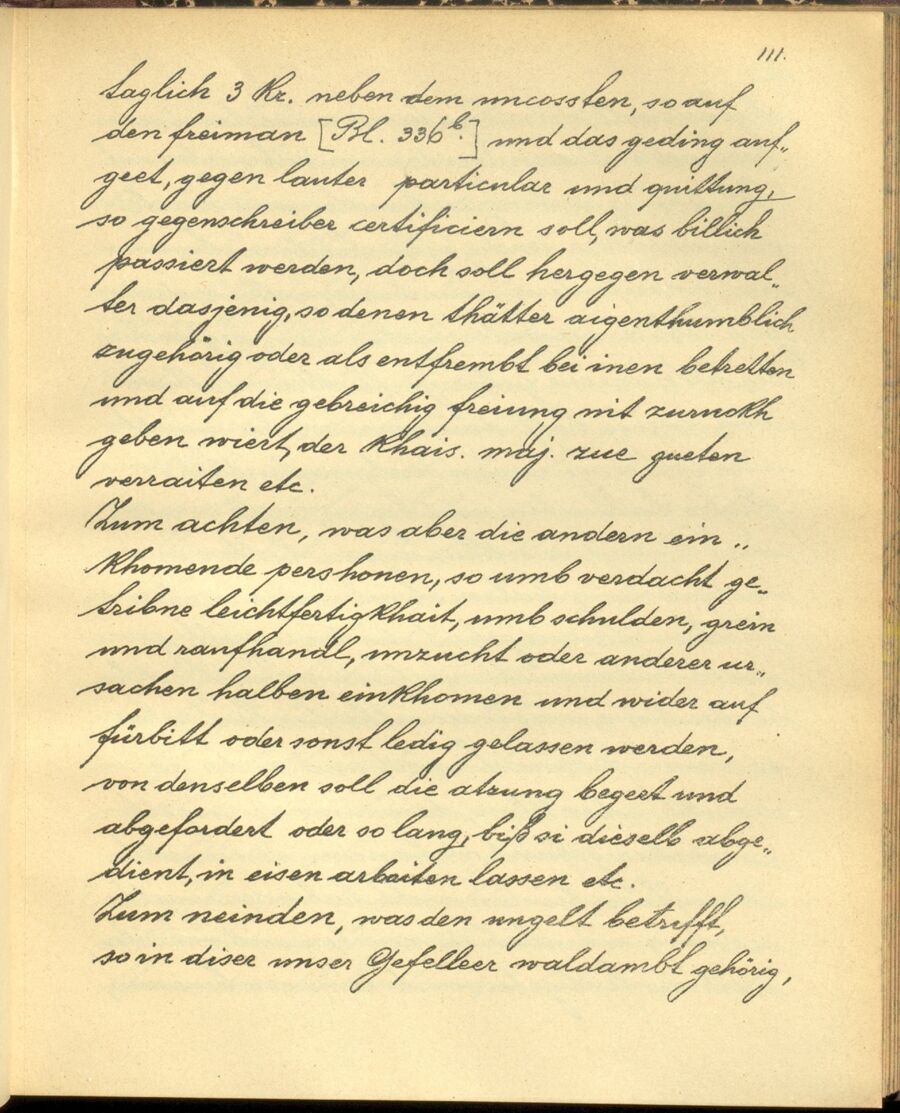 111.
taglich 3 Kr. neben dem uncossten, so auf
den freiman [Bl. 336b.] und das geding auf„
geet, gegen lauter particular und quittung,
so gegenschreiber certificiern soll, was billich
passiert werden, doch soll hergegen verwal„
ter dasjenig, so denen thätter aigenthumblich
zugehörig oder als entfrembt bei inen betretten
und auf die gebreichig freiung nit zuruckh
geben wiert, der Khais. maj. zue gueten
verraiten etc.
Zum achten, was aber die andern ein„
khomende pershonen, so umb verdacht ge„
tribne leichtfertigkhait, umb schulden, grein
und raufhandl, unzucht oder anderer ur„
sachen halben einkhomen und wider auf
fürbitt oder sonst ledig gelassen werden,
von denselben soll die atzung begert und
abgefordert oder so lang, biß si dieselb abge„
dient, in eisen arbaiten lassen etc.
Zum neinden, was den ungelt betrifft,
so in diser unser Gefelleer waldambt gehörig,